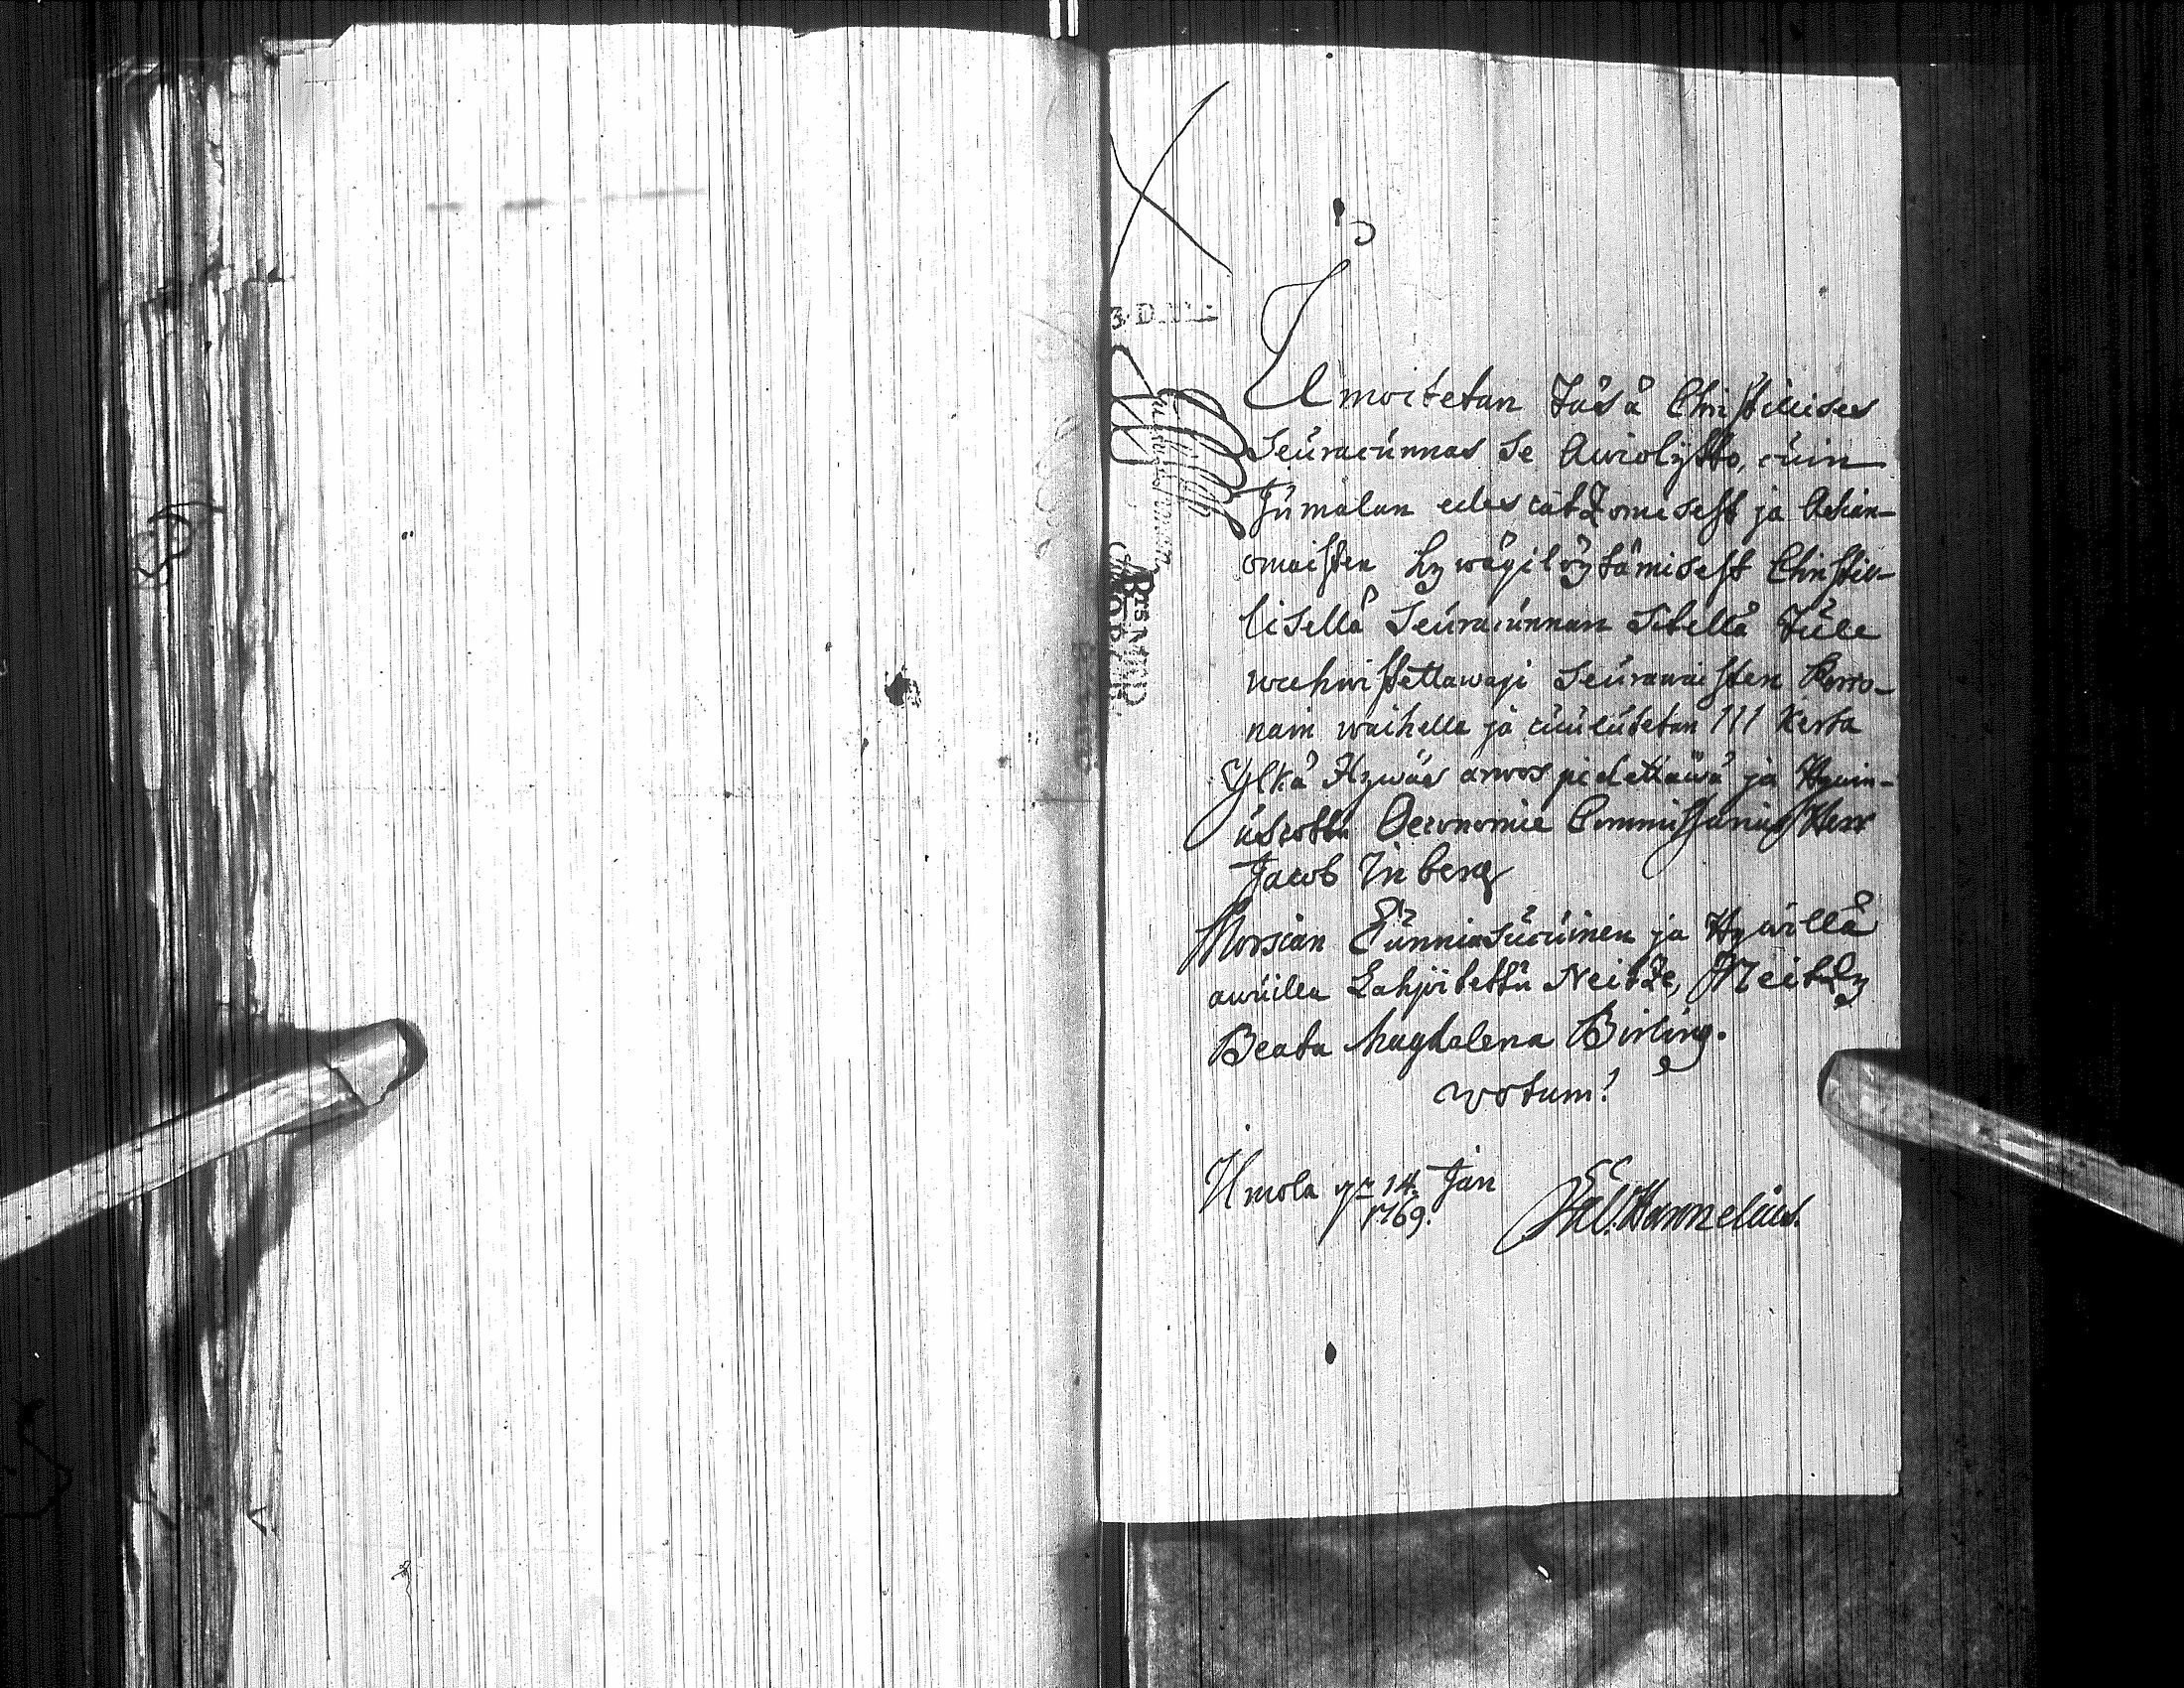 Ilmoitetan täsä Christilises
Seuracunnas se Awiolijtto, cuin
Jumalan edescatzomisest ja Asian-
omaisten hywäxilöytämisest Christil-
lisellä Seuracunnan sitellä tule
wahwistettawaxi seurawaisten Perso-
nain waihella ja cuulutetan III Kerta
Ylkä Hywäs arwos pidettäwä ja Hywin-
uscottu Oeconomie Commissarius Herr
Jacob Inberg
Morsian Cunniasucuinen ja Hywillä
awuilla Lahjoitettu Neitze, Neitzy
Beata Magdalena Birling.
wotum!
Ilmola 14. Jan
1769.